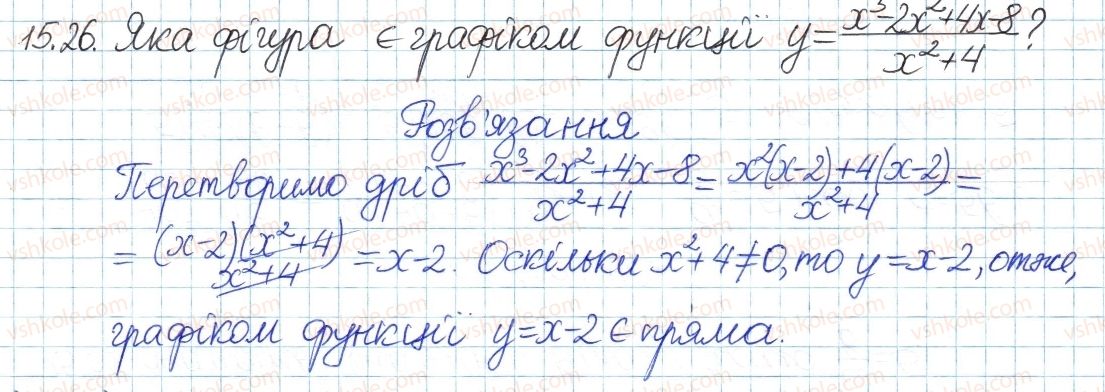 15.26. Яка фігура є графіком функції y = (x³-2x²+4x-8)/(x²+4)?
Розв'язання
Перетворимо дріб (x³-2x²+4x-8)/(x²+4) = (x²(x-2)+4(x-2))/(x²+4) =
= ((x-2)(x²+4))/(x²+4) = x-2. Оскільки x²+4≠0, то y=x-2, отже,
графіком функції y=x-2 є пряма.